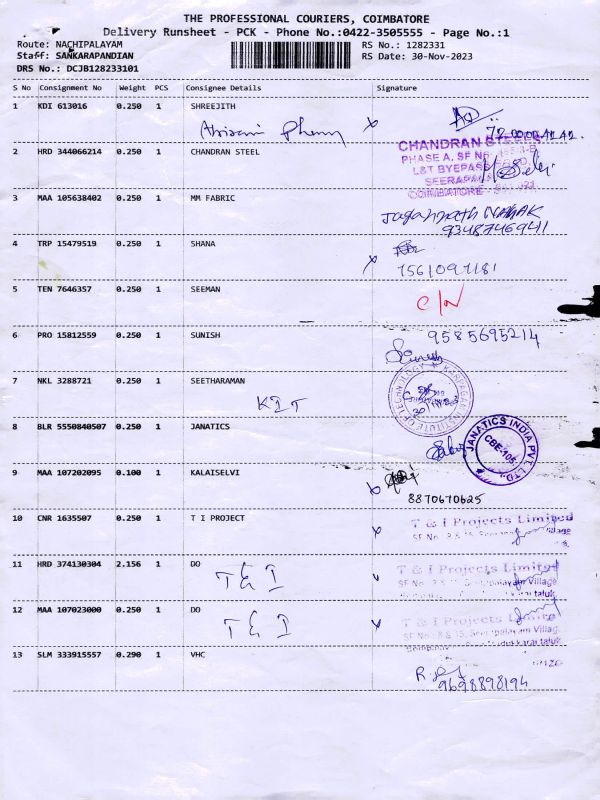 THE PROFESSIONAL COURIERS, COIMBATORE
Delivery Runsheet - PCK - Phone No.:0422-3505555 - Page No.:1
Route: NACHIPALAYAM RS No.: 1282331
Staff: SANKARAPANDIAN RS Date: 30-Nov-2023
DRS No.: DCJB128233101
S No Consignment No Weight PCS Consignee Details Signature
1 KDI 613016 0.250 1 SHREEJITH
2 HRD 344066214 0.250 1 CHANDRAN STEEL
CHANDRAN STEELS
PHASE A, SF No.
L&T BYEPASS
3 MAA 105638402 0.250 1 MM FABRIC
Jagannath NAYAK
9348746941
4 TRP 15479519 0.250 1 SHANA
7561097181
5 TEN 7646357 0.250 1 SEEMAN
C/N
6 PRO 15812559 0.250 1 SUNISH
9585695214
7 NKL 3288721 0.250 1 SEETHARAMAN
KIT
KARPAGAM INSTITUTE OF TECHNOLOGY
8 BLR 5550840507 0.250 1 JANATICS
JANATICS INDIA PVT. LTD.,
CBE-105.
9 MAA 107202095 0.100 1 KALAISELVI
8870670625
10 CNR 1635507 0.250 1 T I PROJECT
T & I Projects Limited
11 HRD 374130304 2.156 1 DO
T & I
T & I Projects Limited
SF No. 8 & 15, Seerapalayam Village
12 MAA 107023000 0.250 1 DO
T & I
T & I Projects Limited
SF No. 8 & 15, Seerapalayam Village
13 SLM 333915557 0.290 1 VHC
9698898194